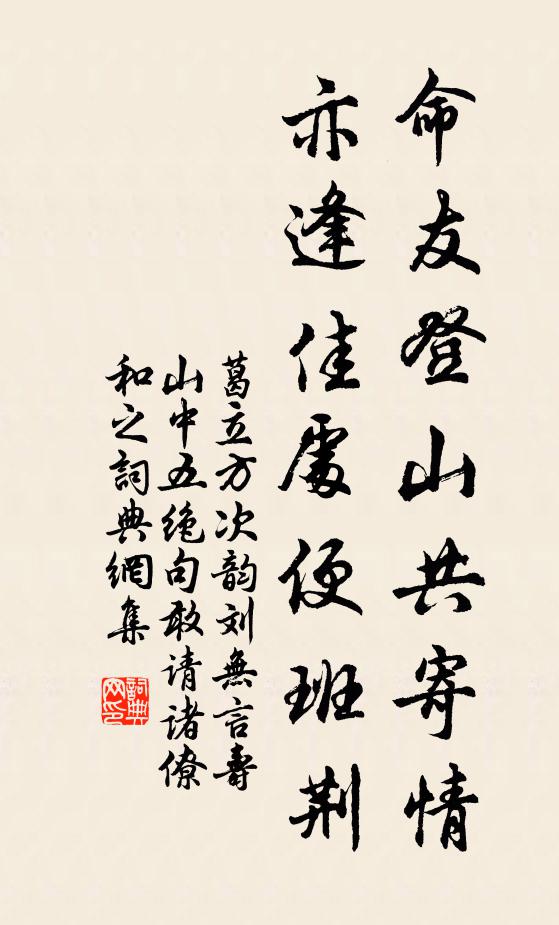 命友登山共寄情
亦逢佳處便班荆
葛立方次韵刘無言壽
山中五绝句敢请诸僚
和之詞典網集
詞典
网印